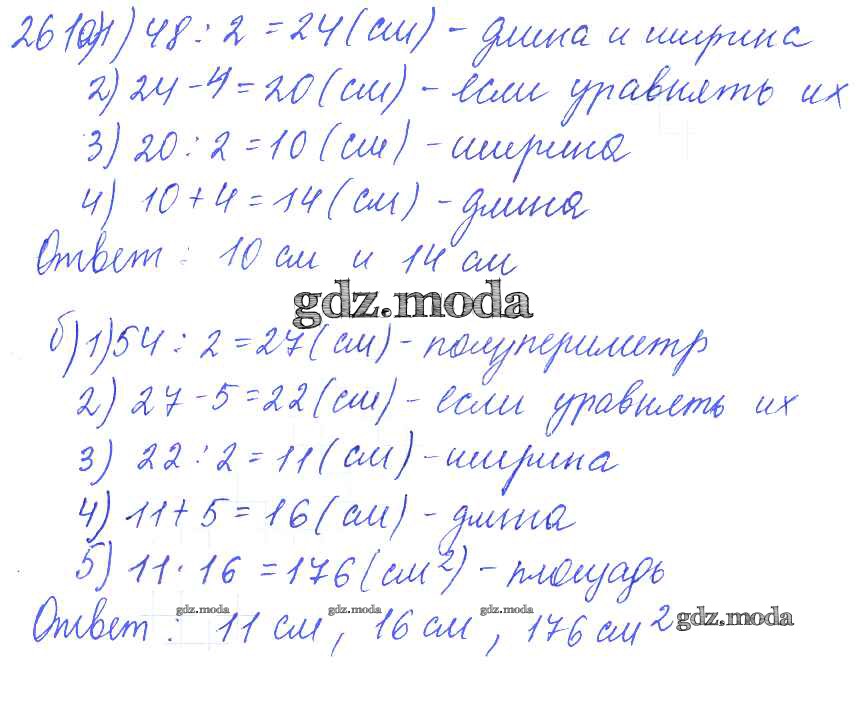 261а) 1) 48 : 2 = 24 (см) - длина и ширина
2) 24 - 4 = 20 (см) - если уравнять их
3) 20 : 2 = 10 (см) - ширина
4) 10 + 4 = 14 (см) - длина
Ответ : 10 см и 14 см
gdz.moda
б) 1) 54 : 2 = 27 (см) - полупериметр
2) 27 - 5 = 22 (см) - если уравнять их
3) 22 : 2 = 11 (см) - ширина
4) 11 + 5 = 16 (см) - длина
5) 11 · 16 = 176 (см²) - площадь
gdz.moda gdz.moda gdz.moda
Ответ : 11 см, 16 см, 176 см² gdz.moda